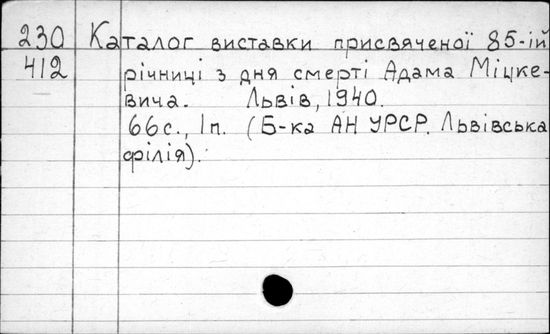 230 Каталог виставки присвяченої 85-ій
412 річниці з дня смерті Адама Міцке-
вича. Львів, 1940.
66с., 1п. (Б-ка АН УРСР. Львівська
філія).